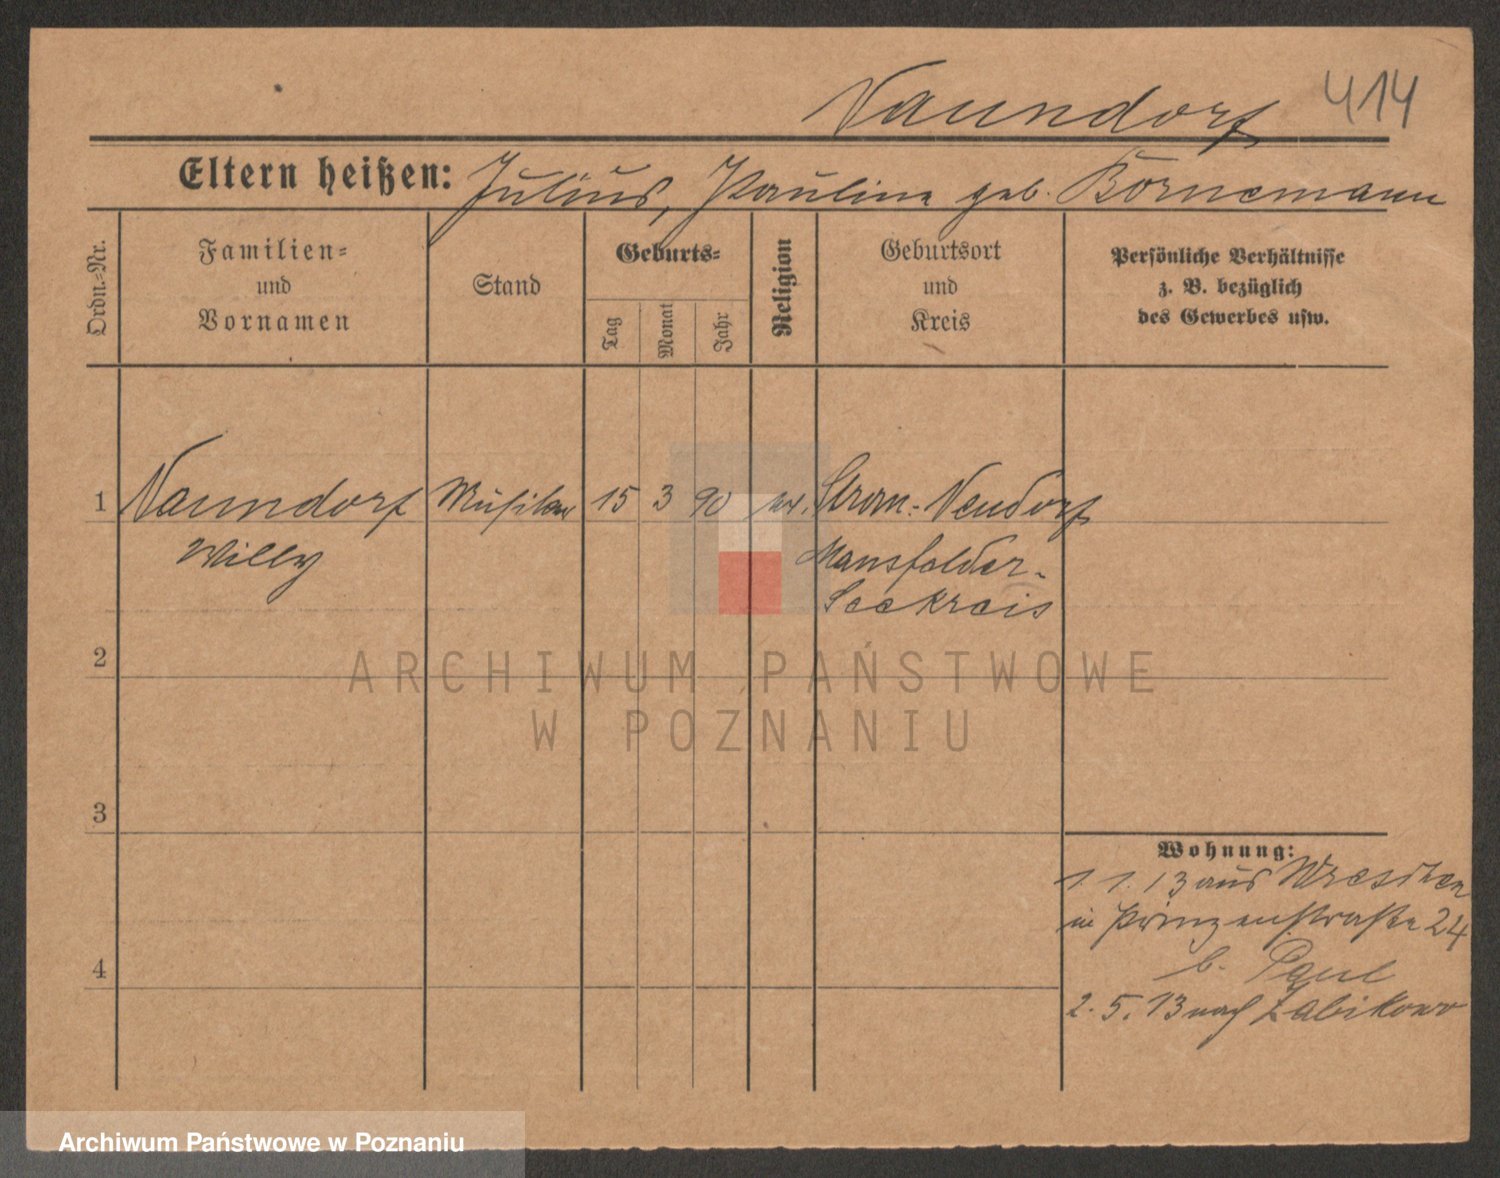 Naundorf 414
Eltern heißen: Julius, Pauline geb. Bornemann
Ordn.-Nr.
Familien-
und
Vornamen
Stand
Geburts-
Tag
Monat
Jahr
Religion
Geburtsort
und
Kreis
Persönliche Verhältnisse
z. B. bezüglich
des Gewerbes usw.
1 Naundorf Musiker 15 3 90 ev. Neudorf
Willy Mansfelder-
Seekreis
2
3
4
Wohnung:
1. 1. 13 aus Wreschen
in Prinzenstraße 24
b. Paul
2. 5. 13 nach Zabikowo
ARCHIWUM PAŃSTWOWE
W POZNANIU
Archiwum Państwowe w Poznaniu